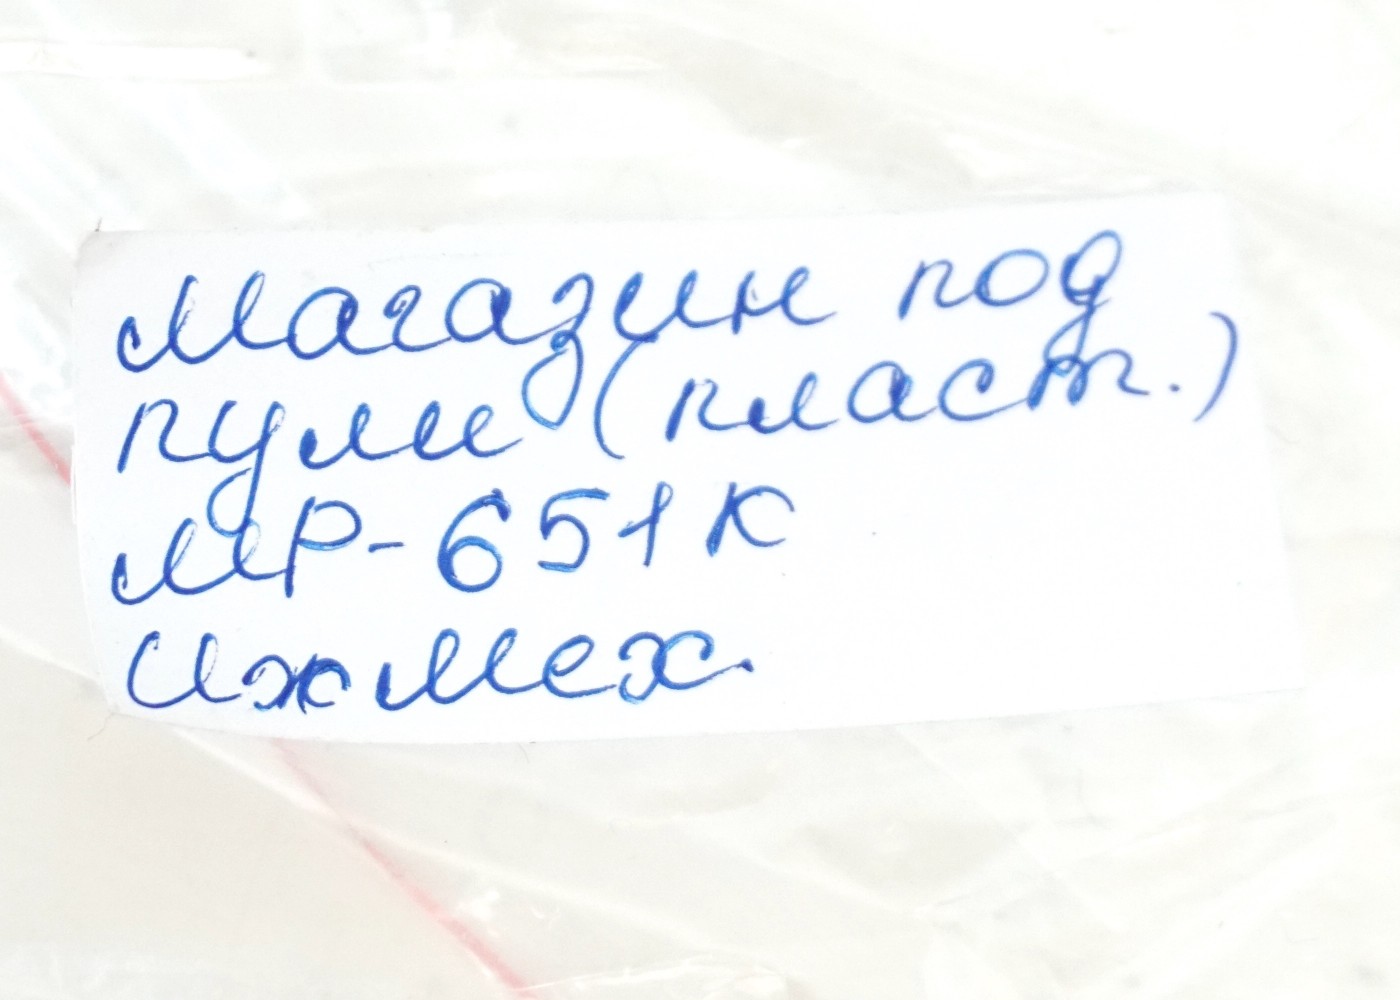 Магазин под
пули (пласт.)
МР-651К
ИжМех.